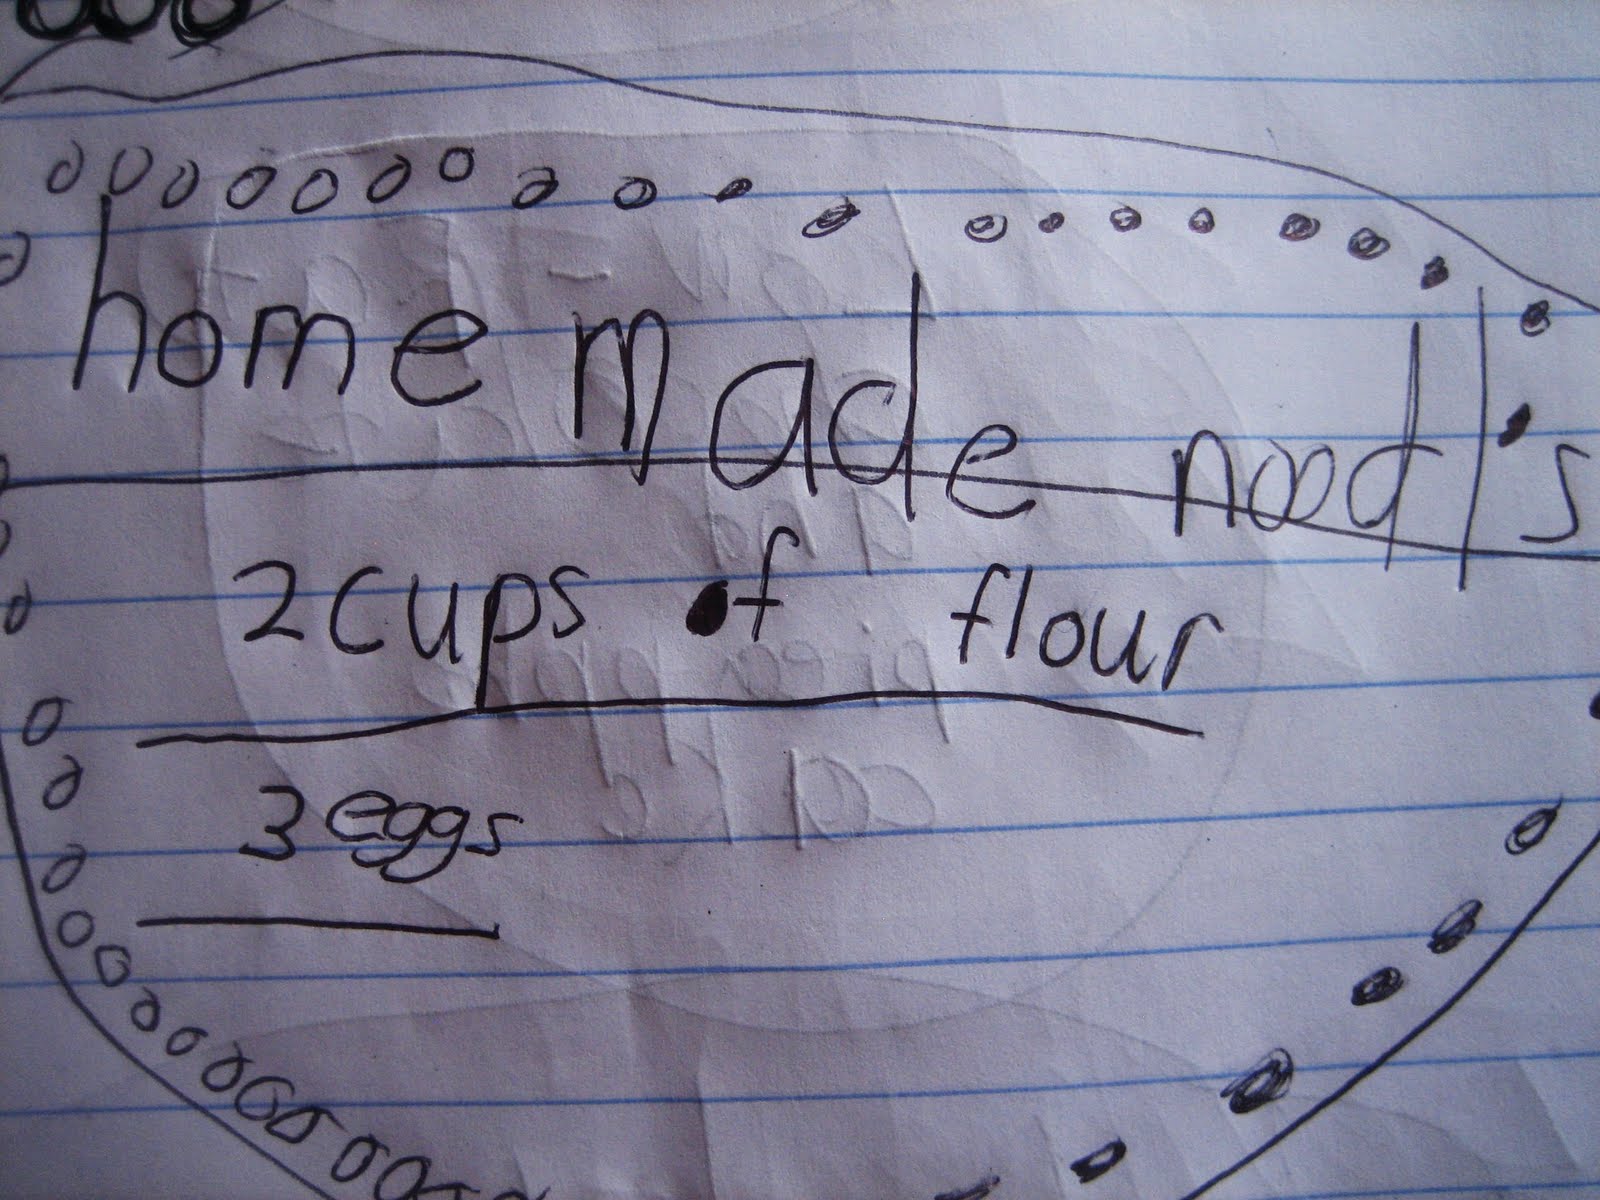 home made noodl's
2 cups of flour
3 eggs